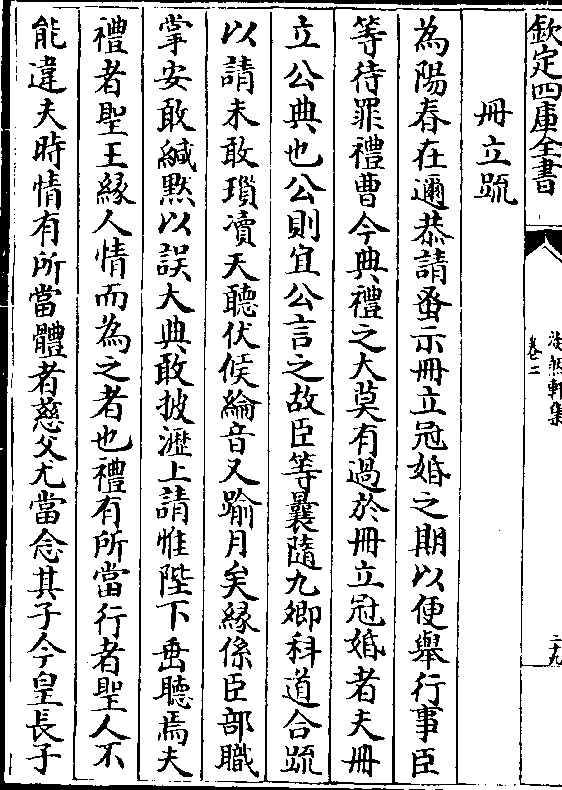 欽定四庫全書
淡然軒集
卷二
二九
冊立䟽
為陽春在邇恭請蚤示冊立冠婚之期以便舉行事臣
等待罪禮曹今典禮之大莫有過於冊立冠婚者夫冊
立公典也公則宜公言之故臣等曩隨九卿科道合䟽
以請未敢瑣凟天聽伏候綸音又踰月矣緣係臣部職
掌安敢緘黙以誤大典敢披瀝上請惟陛下垂聽焉夫
禮者聖王緣人情而為之者也禮有所當行者聖人不
能違夫時情有所當體者慈父尤當念其子今皇長子